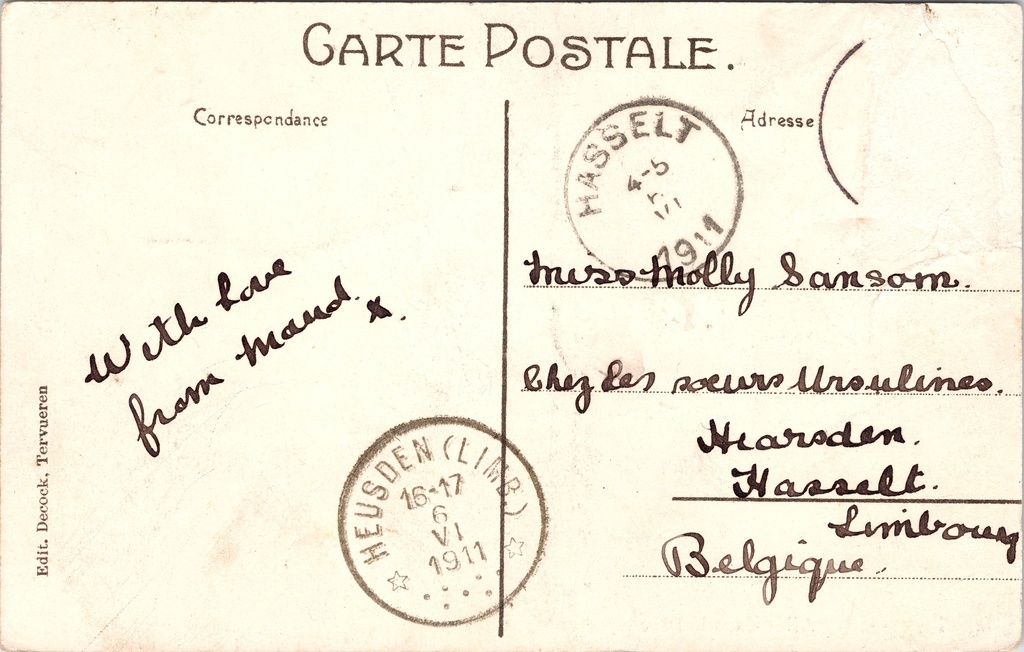 CARTE POSTALE.
Correspondance
Adresse
HASSELT
4-5
VI
1911
With love
from Maud.
x.
Miss Molly Sansom.
Chez les sœurs Ursulines.
Hearsden.
Hasselt.
Limbourg
Belgique.
HEUSDEN (LIMB)
16-17
6
VI
1911
Edit. Decock, Tervueren